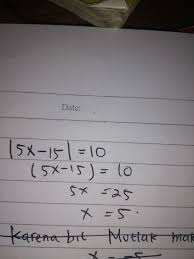 Date:
|5x-15| = 10
(5x-15) = 10
5x = 25
x = 5.
Karena bil Mutlak mak
x = -5